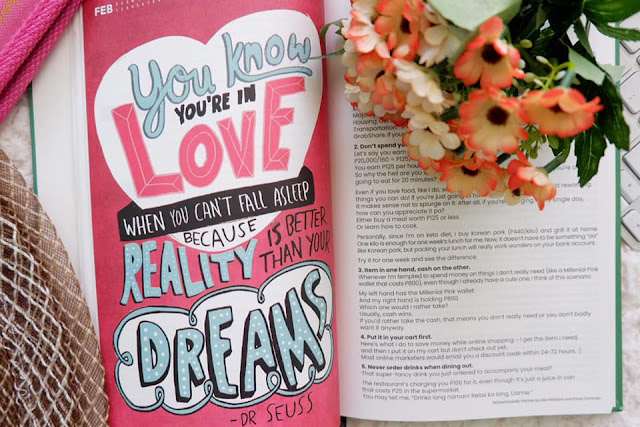 FEB
You know
YOU'RE IN
LOVE
WHEN YOU CAN'T FALL ASLEEP
BECAUSE
REALITY IS BETTER
THAN YOUR
DREAMS
-DR SEUSS
Majority
Housing:
Transportation:
GrabShare. If you
2. Don't spend
Let's say you earn
P20,000/160 = P125
You earn P125 per hour
So why the hell are you
going to eat for 20 minutes?
Even if you love food, like I do,
things you can do! If you're just going
it makes sense not to splurge on it. After all, if you're single day,
how can you appreciate it pa?
Either buy a meal worth P125 or less.
Or learn how to cook.
Personally, since I'm on keto diet, I buy Korean pork (P440/kilo) and grill it at home.
One kilo is enough for one week's lunch for me. Now, it doesn't have to be something "so"
like Korean pork, but packing your lunch will really work wonders on your bank account.
Try it for one week and see the difference.
3. Item in one hand, cash on the other.
Whenever I'm tempted to spend money on things I don't really need (like a Millenial Pink
wallet that costs P800), even though I already have a cute one, I think of this scenario:
My left hand has the Millenial Pink wallet
And my right hand is holding P800.
Which one would I rather take?
Usually, cash wins.
If you'd rather take the cash, that means you don't really need or you don't badly
want it anyway.
4. Put it in your cart first.
Here's what I do to save money while online shopping - I get the item I need,
and then I put it on my cart but don't check out yet.
Most online marketers would email you a discount code within 24-72 hours. :)
5. Never order drinks when dining out.
That super-fancy drink you just ordered to accompany your meal?
The restaurant's charging you P100 for it, even though it's just a juice in can
that costs P25 in the supermarket.
You may tell me, "Drinks lang naman! Relax ka lang, Lianne."